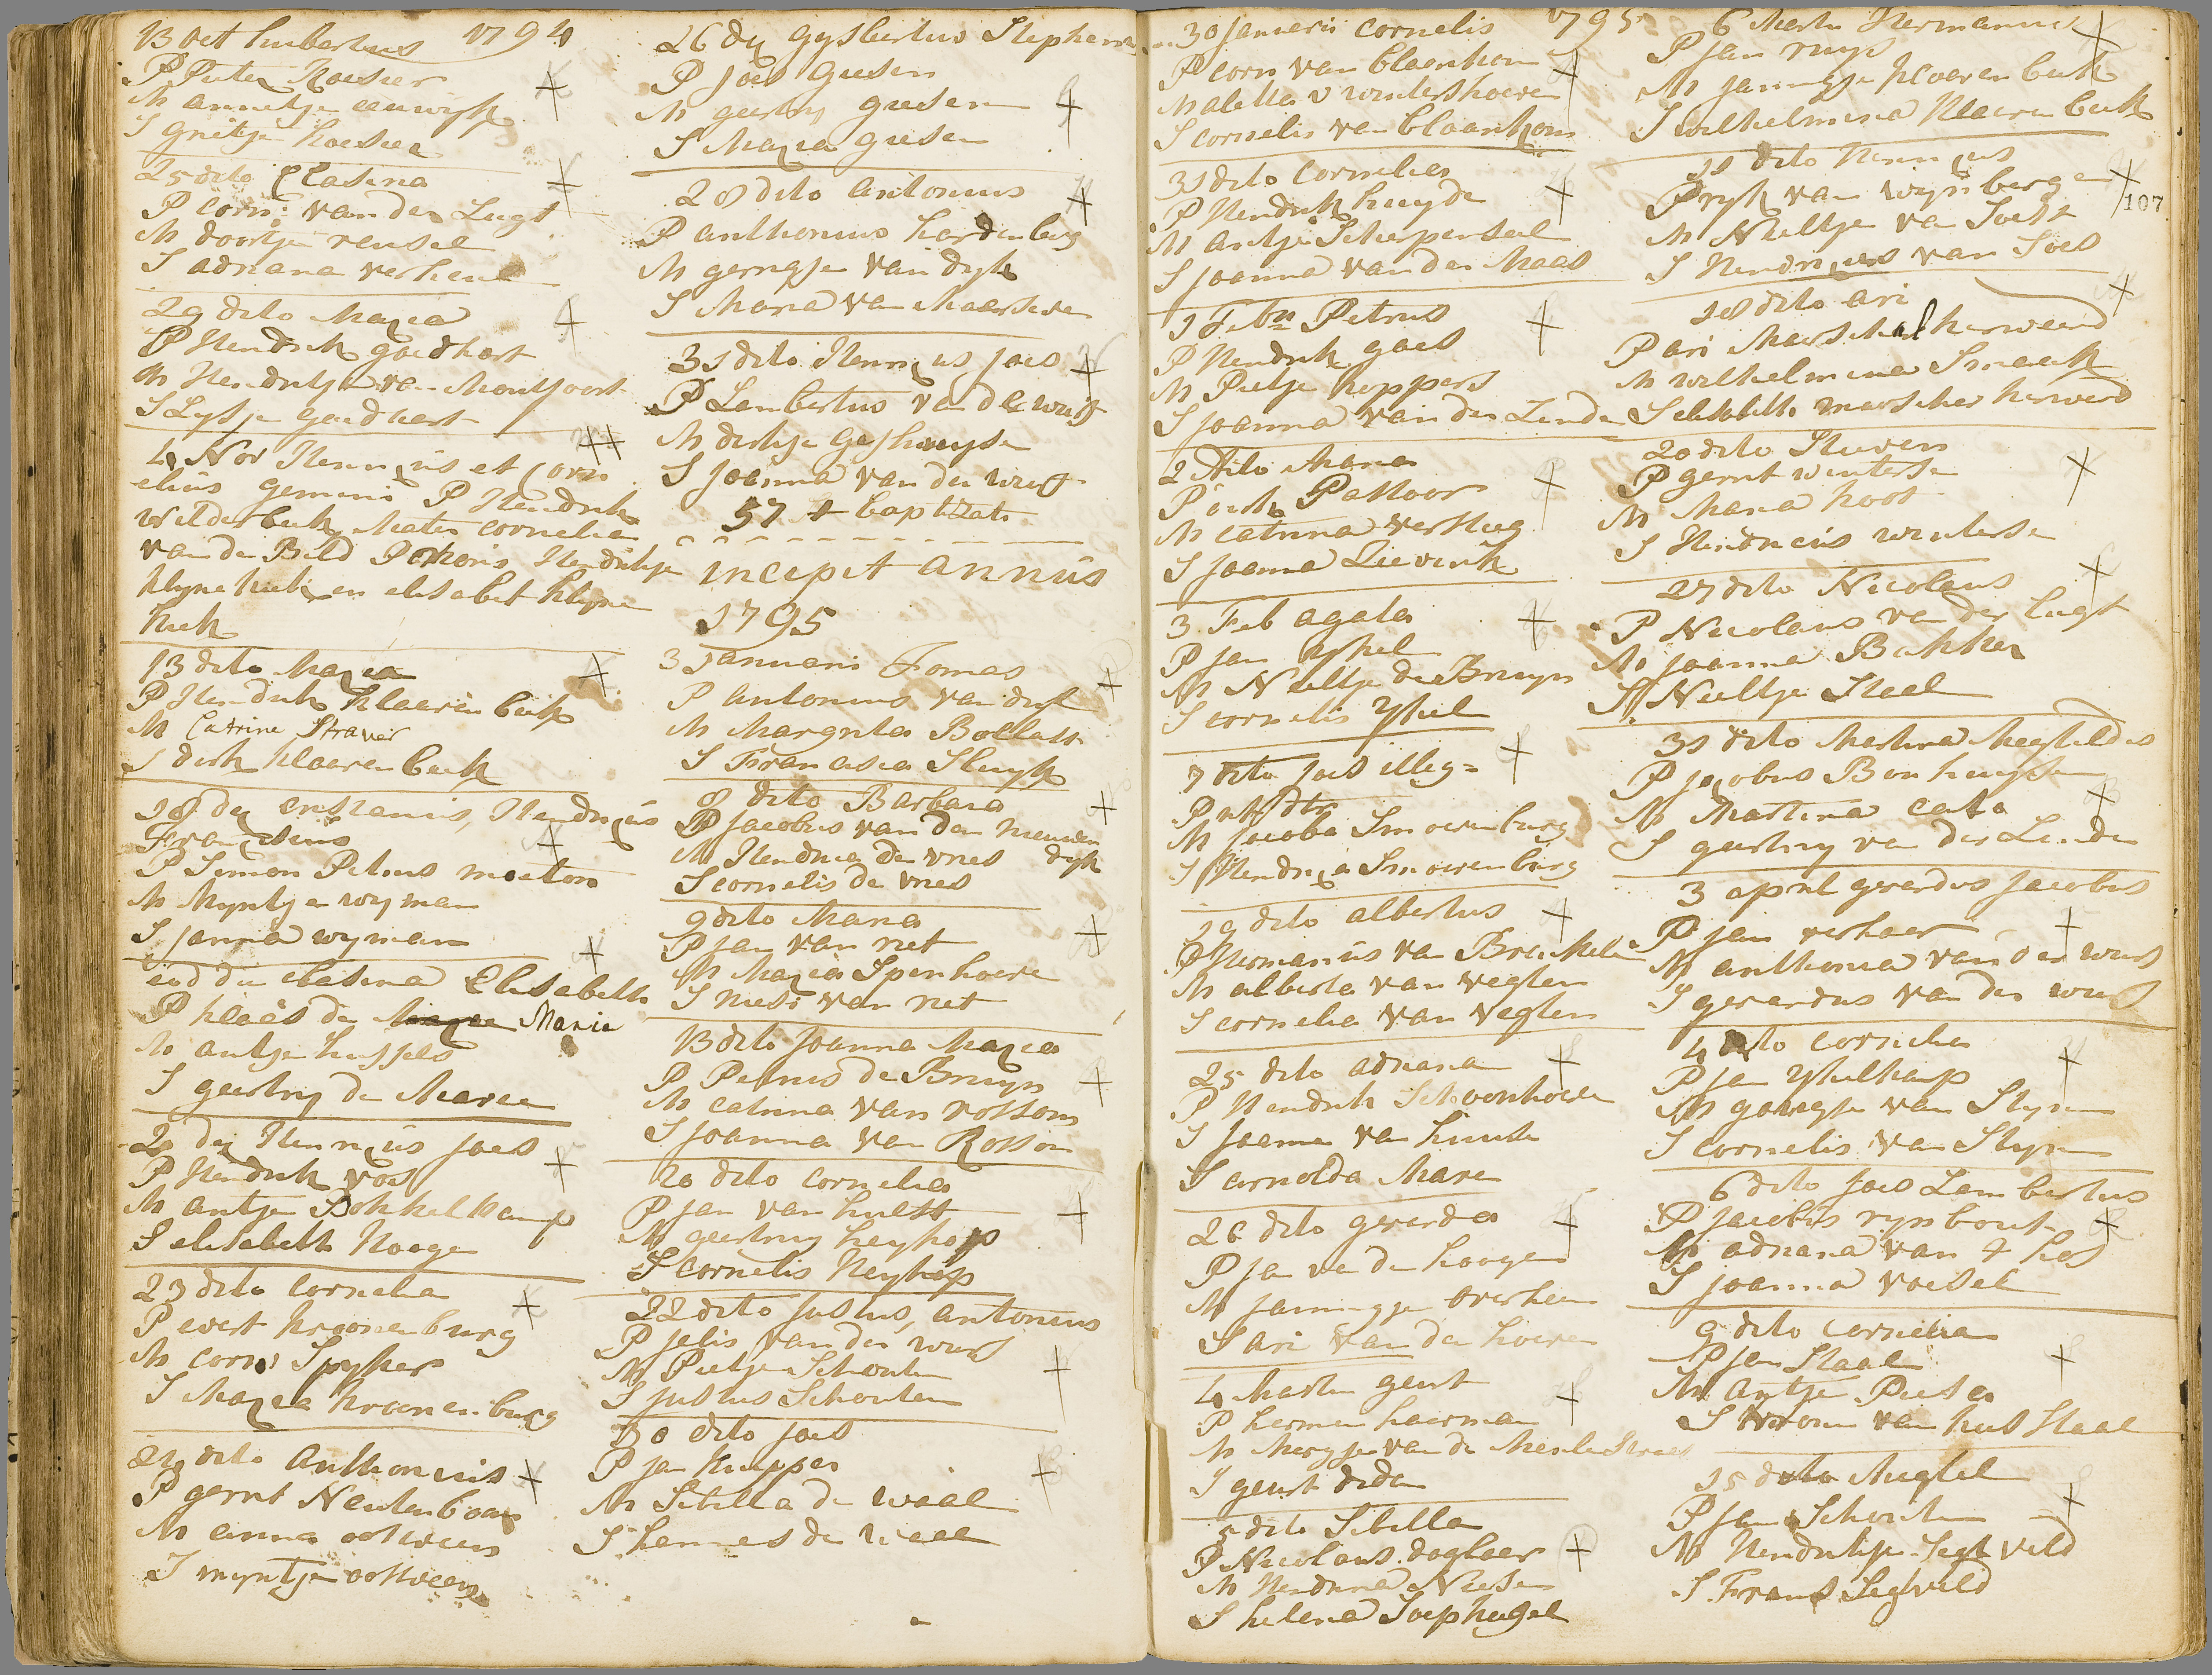 13 oct hubertus 1794
P Peter Koeseer
M annetje eeuwijk
S grietje koeseer
25 dito Clasina
P corn: van der Lugt
M doortje rensel
S adriana verheul
29 dito Maria
P Hendrik goedhart
M Hendrikje van Montfoort
S Lysje goedhart
4 Nov Henricus et Corn
elius gemini P Hendrik
Wilderbeek Mater cornelia
van de Bild Hendrikje
klyne en elisabet klyne
13 dito Maria
P Hendrik klaerenbeek
M Catrine Straver
S dirk klaerenbeek
18 dij Hendricus
Franciscus
P Simon Petrus
M Myntje wyman
S Janna wyman
eod die clasina Elisabeth
P klaas de Marie
M antje
S geertruy de Maree
20 dij Henricus joes
P Hendrik vos
M antje Bokkelkamp
S elisabeth Hooge
23 dito cornelia
P evert kroonenburg
M corn: Spyker
S Maria kroonenburg
24 dito Anthonius
P gerrit Neutenboom
M anna oostveen
S myntje oostveen
26 dij Gysbertus Stephanus
P joes giesen
M geertruy giesen
S Maria giesen
28 dito antonius
P anthonius hardenberg
M gerregje van dyk
S Maria van Maarseve
31 dito Henricus joes
P Lambertus van de werf
M dirkje
S joanna van der werf
57 + baptizati
incipit annus
1795
3 Januarii Tomas
P antonius van
M Margrita Bollast
S Francisca Sluyk
8 dito Barbara
P jacobus van den nieuwen
dyk
M Hendrica de vries
S cornelis de vries
9 dito Maria
P jan van net
M Maria Spenhoeve
S van net
13 dito joanna Maria
P Petrus de Bruyn
M catrina van rossom
S joanna van Rossom
20 dito cornelia
P jan van hulst
M geertruy heykoop
S cornelis Heykoop
22 dito justus, antonius
P jelis van der werf
M Pietje Schouten
S justus Schouten
30 dito joes
P jan kuyper
M Sibilla de waal
S hannes de waal
30 januarii cornelis 1795
P corn van blaankom
M aletta v wintershoeve
S cornelis van blaankom
31 dito cornelia
P Hendrik huyde
M antje Scherpenseel
S joanna van der Maas
1 Feb Petrus
P Hendrik goes
M Pietje koppers
S joanna van der Linde
2 dito Maria
P dirk Pastoor
M catrina versteeg
S joanna Lieverik
3 Feb agata
P jan Yssel
M Neeltje de Bruyn
S cornelis Yssel
7 dito joes illeg=
M jacoba Smoorenburg
S Hendrica Smoorenburg
19 dito albertus
P Hermanus van Breukelen
M alberta van vegten
S cornelia van vegten
25 dito adriana
P Hendrik Schoonhoven
S joanna van
S arnolda Mare
26 dito gerarda
P jan van den hoogen
M jannigje overheem
S ari van der hoeven
4 Martii geurt
P hermen haerman
M Mergje van de Merle Straet
S geurt
5 dito Sibilla
P Nicolaus daglaer
M Hendrina Niesen
S helena Soephugel
6 Martii Hermannus
P jan ruys
M jannigje klaerenbeek
S wilhelmina klaerenbeek
11 dito Henricus
P ryk van wynbergen
M Neeltje van Soest
S Hendricus van Soes
107
18 dito ari
P ari Maerschalkerweerd
M wilhelmina Smaerk
S elisabeth marschalkerweerd
20 dito Steven
P gerrit winterse
M Maria hoos
S Hendricus winterse
27 dito Nicolaus
P Nicolaus van der lugt
M joanna Bakker
S Neeltje Staal
31 dito Martina Megteldis
P jacobus Bonhuyse
M Martina cato
S geertruy van der Linden
3 april gerardus jacobus
P jan verhaer
M anthonia van der werf
S gerardus van der werf
4 dito cornelia
P jan Ysselkamp
M goregje van Slyn
S cornelis van Slyn
6 dito joes Lambertus
P jacobus rynbout
M adriana van 't hof
S joanna voesel
9 dito cornelia
P jan Staal
M antje Pieters
S Staal
15 dito Magtel
P jan Schouten
M Hendrikje Segtveld
S Frans Segtveld